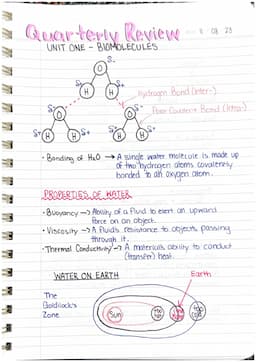 Quarterly Review
UNIT ONE - BIOMOLECULES
S-
O
S+ H H S+
S- O S- O
Hydrogen Bond (inter-)
Polar Covalent Bond (intra-)
S+ H H S+ S+ H H S+
• Bonding of H2O → A single water molecule is made up
of two hydrogen atoms covalently
bonded to an oxygen atom.
PROPERTIES OF WATER
• Buoyancy → Ability of a fluid to exert an upward
force on an object.
• Viscosity → A fluids resistance to objects passing
through it.
• Thermal Conductivity → A materials ability to conduct
(transfer) heat.
WATER ON EARTH
Earth
The
Goldilock's
Zone
Sun